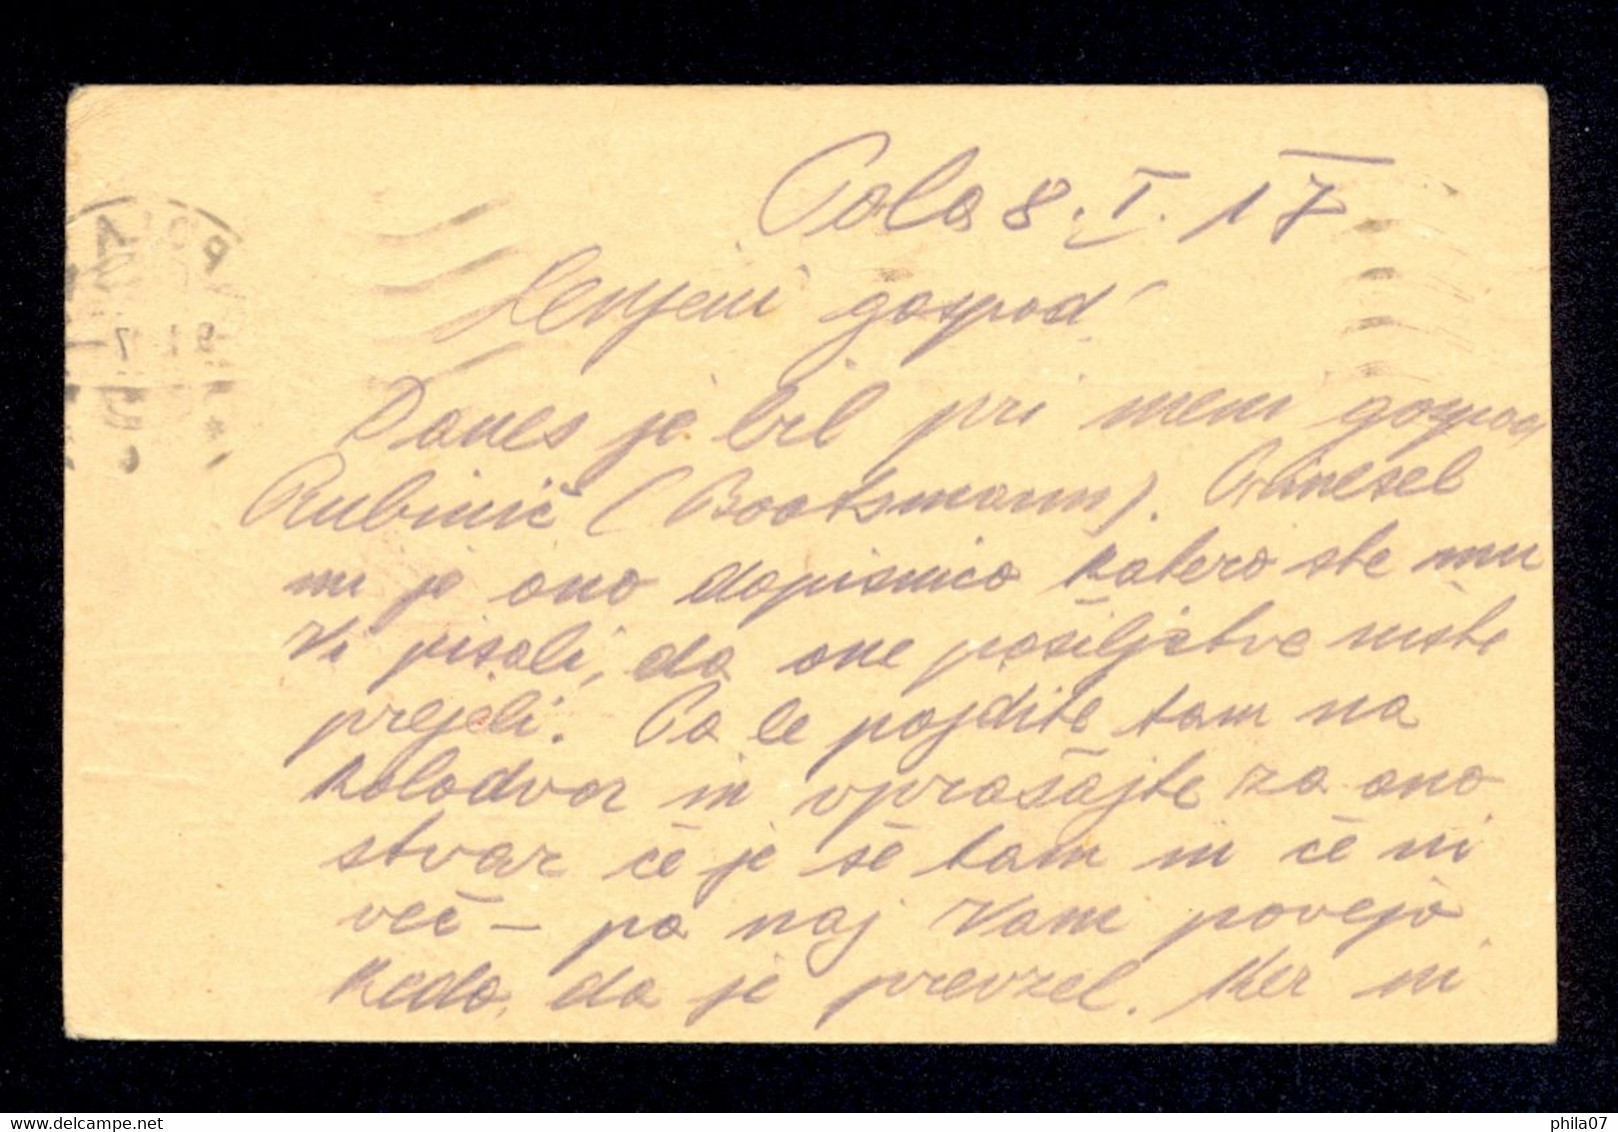 Pola 8. I. 17
Cenjeni gospod!
Danes je bil pri meni gospod
Rubinič (Bootsmann). Prinesel
mi je ono dopisnico katero ste mu
Vi pisali, da one pošiljatve niste
prejeli. Pa le pojdite tam na
kolodvor in vprašajte za ono
stvar če je še tam in če ni
več – pa naj Vam povejo
kedo, da je prevzel. Ker ni
delcampe.net
phila07